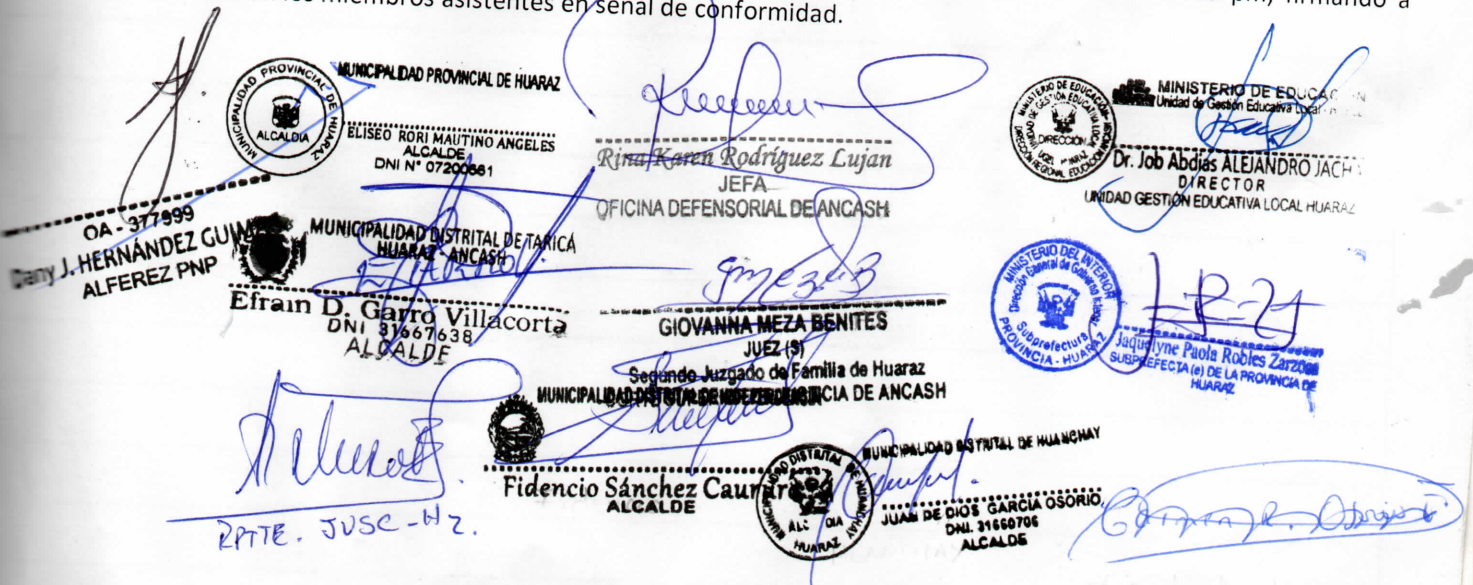 miembros asistentes en señal de conformidad.
firmando a
MUNICIPALIDAD PROVINCIAL DE HUARAZ
ALCALDIA
MUNICIPALIDAD PROVINCIAL DE HUARAZ
ELISEO RORI MAUTINO ANGELES
ALCALDE
DNI N° 07200661
Rina Karen Rodríguez Lujan
JEFA
OFICINA DEFENSORIAL DE ANCASH
MINISTERIO DE EDUCACIÓN
DIRECCIÓN
MINISTERIO DE EDUCAC
Unidad de Gestión Educativa Local
Dr. Job Abdías ALEJANDRO JACH
DIRECTOR
UNIDAD GESTIÓN EDUCATIVA LOCAL HUARAZ
OA - 377999
Dany J. HERNÁNDEZ
ALFEREZ PNP
MUNICIPALIDAD DISTRITAL DE TARICÁ
HUARAZ - ANCASH
Efrain D. Garro Villacorta
DNI 31667638
ALCALDE
GIOVANNA MEZA BENITES
JUEZ (S)
Segundo Juzgado de Familia de Huaraz
MINISTERIO DEL INTERIOR
Dirección General de Gobierno Interior
Subprefectura
PROVINCIA - HUARAZ
Jaquelyne Paola Robles Zarzosa
SUBPREFECTA (e) DE LA PROVINCIA DE
HUARAZ
MUNICIPALIDAD DISTRITAL DE
CIA DE ANCASH
Fidencio Sánchez
ALCALDE
RPTTE. JUSC-HZ.
MUNICIPALIDAD DISTRITAL DE HUANCHAY
HUARAZ
MUNICIPALIDAD DISTRITAL DE HUANCHAY
JUAN DE DIOS GARCIA OSORIO
DNI. 31660706
ALCALDE